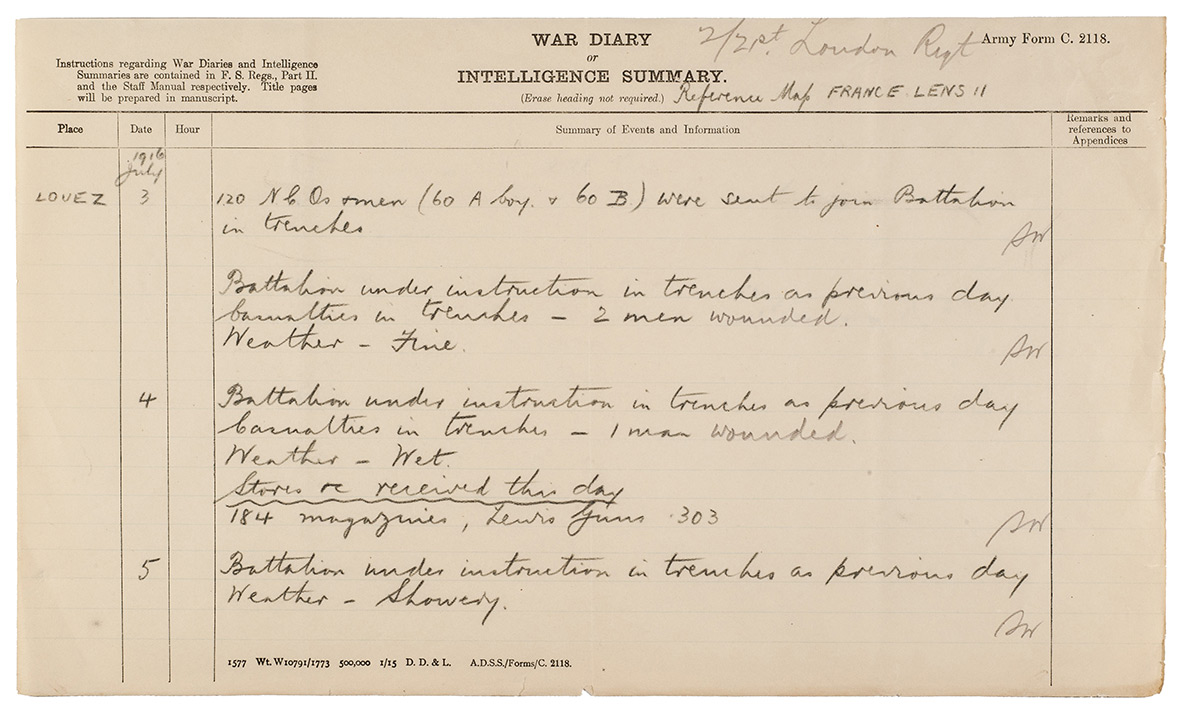 WAR DIARY
or
INTELLIGENCE SUMMARY.
(Erase heading not required.)
2/21st. London Regt
Army Form C. 2118.
Instructions regarding War Diaries and Intelligence
Summaries are contained in F. S. Regs., Part II.
and the Staff Manual respectively. Title pages
will be prepared in manuscript.
Reference Map FRANCE LENS 11
Place Date Hour Summary of Events and Information
Remarks and
references to
Appendices
1916
July
LOUEZ 3 120 N C Os & men (60 A Coy. & 60 B) were sent to join Battalion
in trenches
Battalion under instruction in trenches as previous day
Casualties in trenches – 2 men wounded.
Weather – Fine.
4 Battalion under instruction in trenches as previous day
Casualties in trenches – 1 man wounded.
Weather – Wet.
Stores &c received this day
184 magazines, Lewis Guns .303
5 Battalion under instruction in trenches as previous day
Weather – Showery.
1577 Wt. W10791/1773 500,000 1/15 D. D. & L. A.D.S.S./Forms/C. 2118.